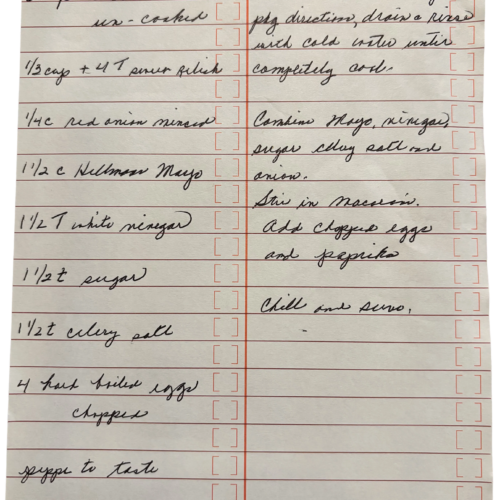 un-cooked
1/3 cup + 4 T Relish
1/4 c red onion minced
1 1/2 c Hellman Mayo
1 1/2 T white vinegar
1 1/2 t sugar
1 1/2 t celery salt
4 hard boiled eggs
chopped
to taste
pkg direction, drain & rinse
with cold water until
completely cool.
Combine Mayo, vinegar,
sugar celery salt and
onion.
Stir in macaroni.
Add chopped eggs
and paprika
Chill and serve.